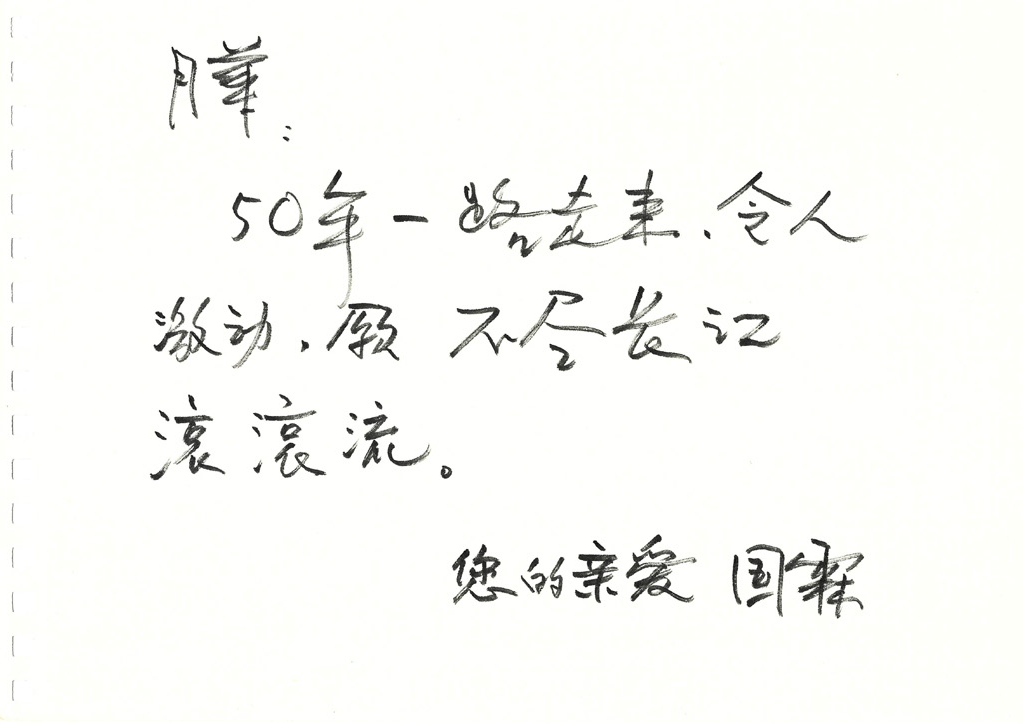 月華：
50年一路走来、令人
激动，愿 不尽长江
滚滚流。
您的亲爱 国霖